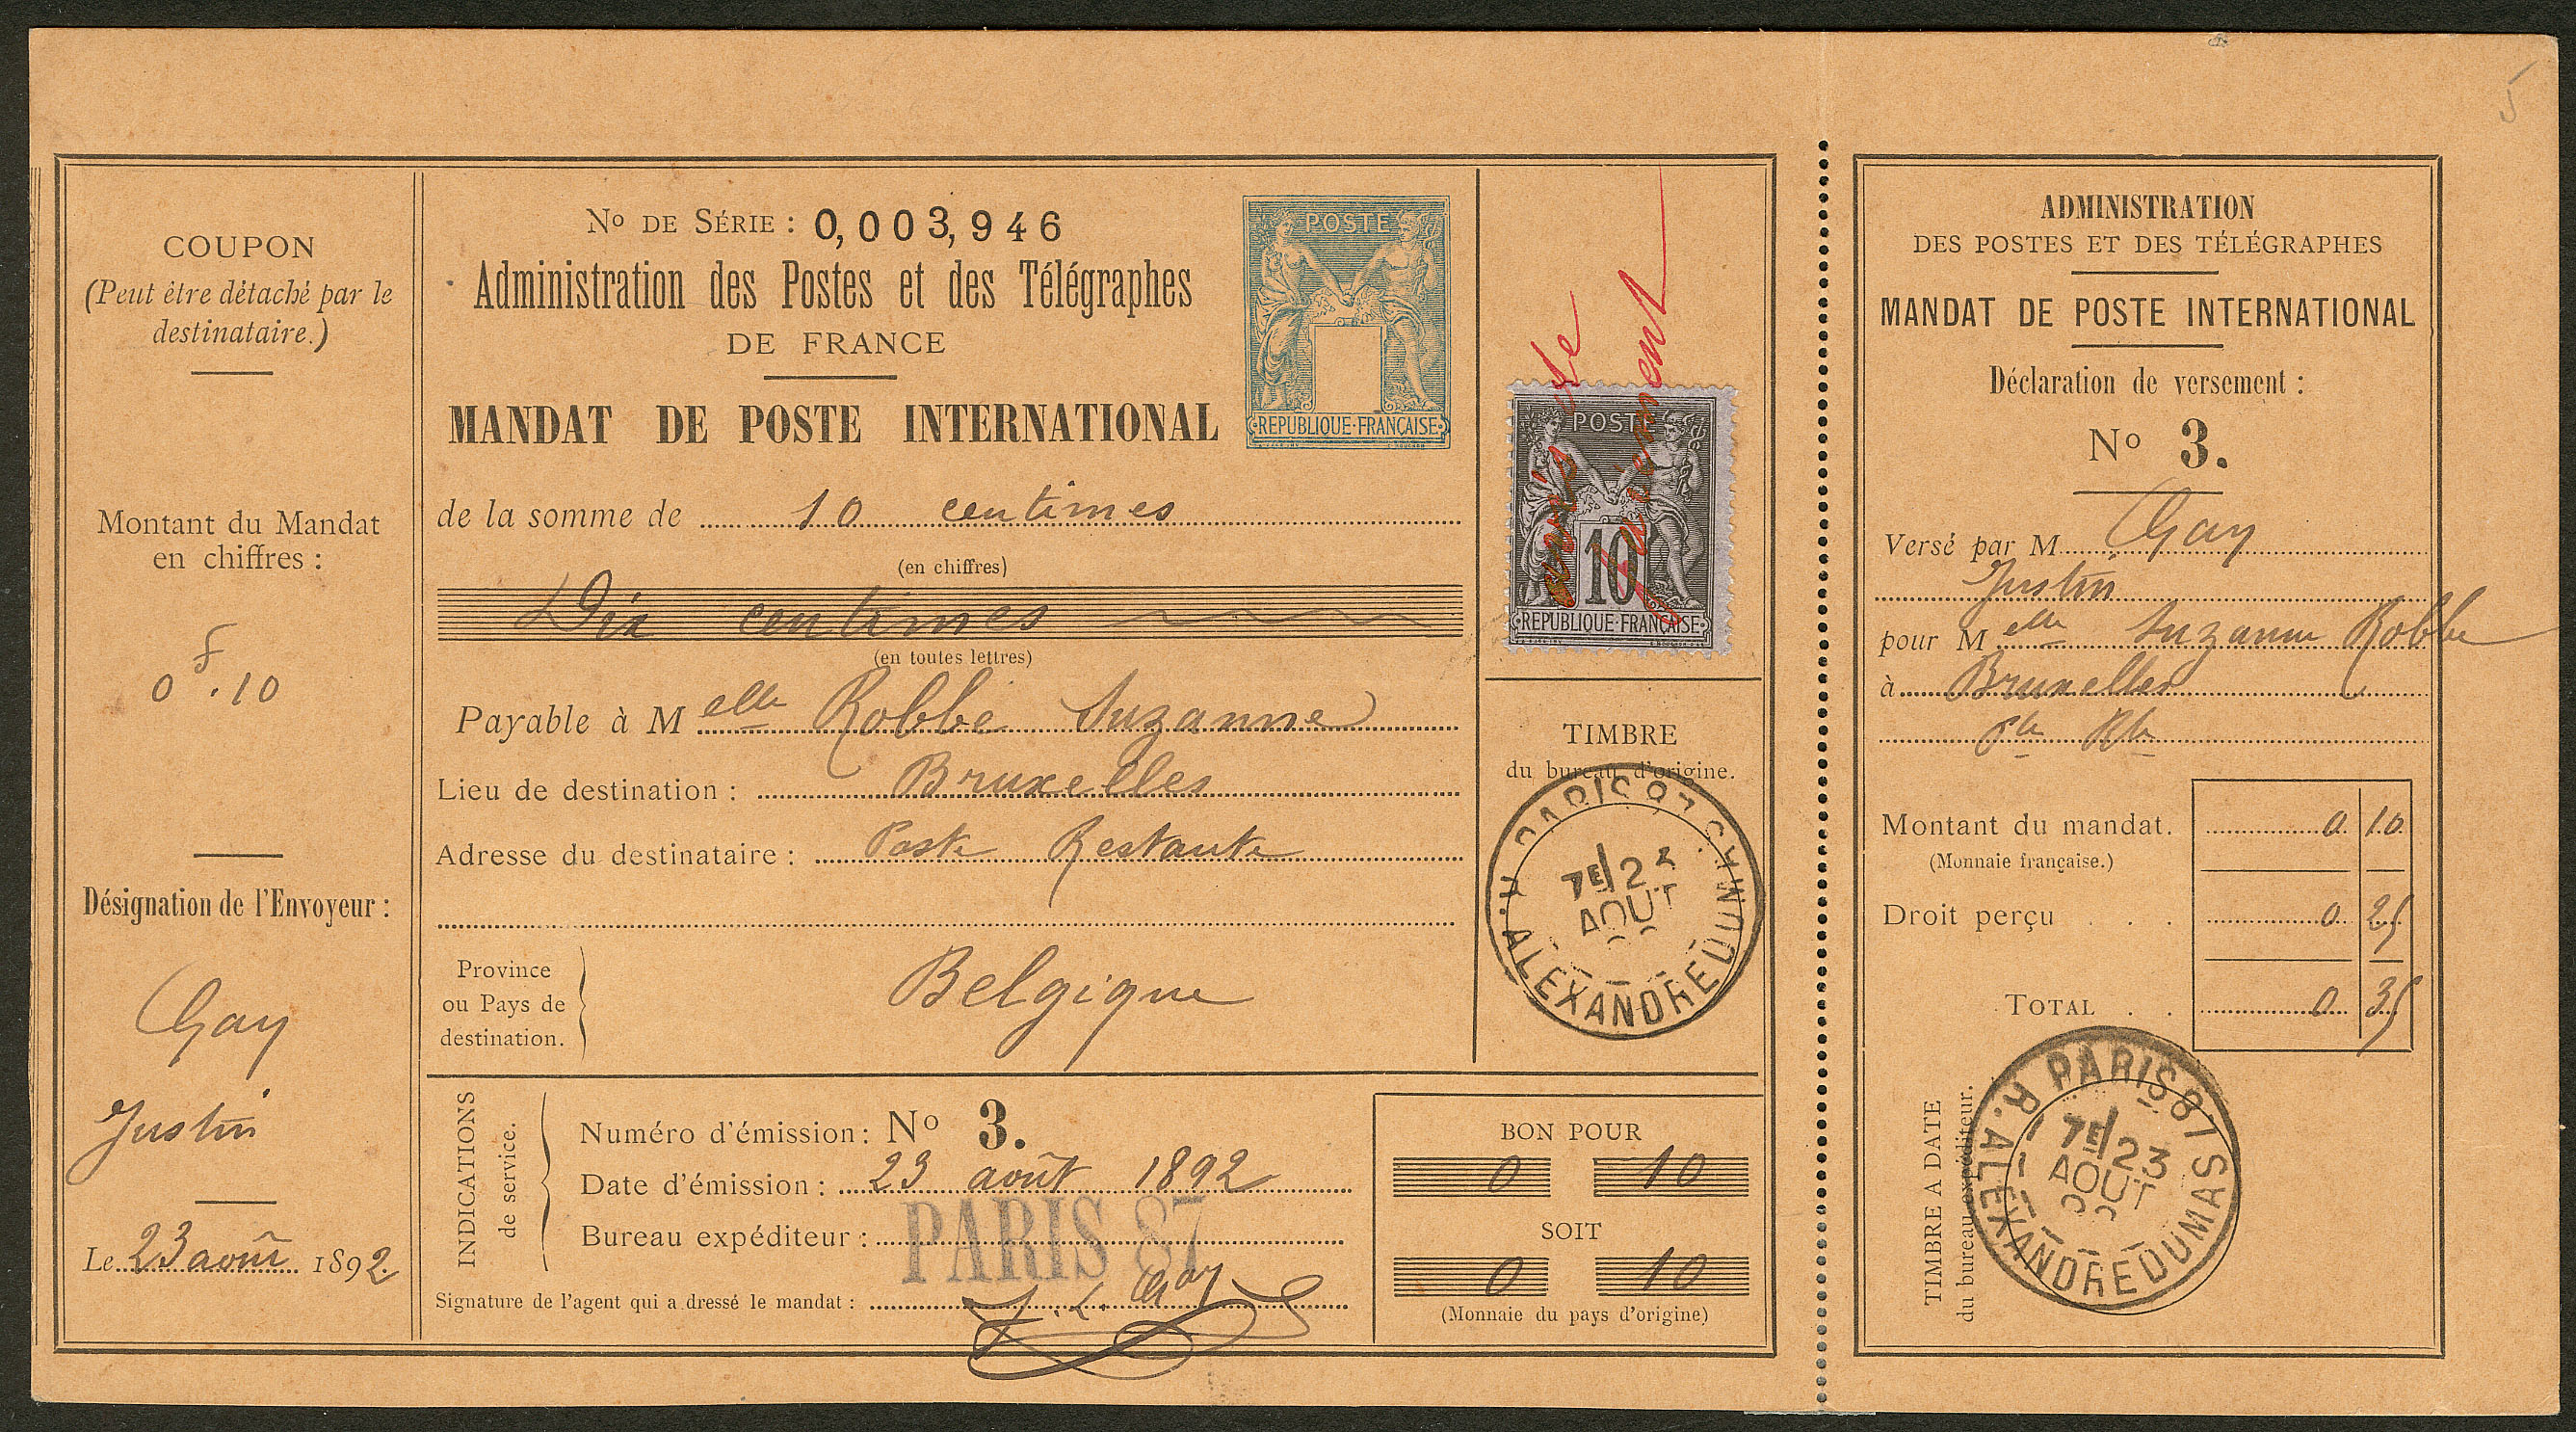 COUPON
(Peut être détaché par le
destinataire.)
Montant du Mandat
en chiffres :
0 f. 10
Désignation de l'Envoyeur :
Gay
Justin
Le 23 août 1892
No DE SÉRIE : 0,003,946
Administration des Postes et des Télégraphes
DE FRANCE
MANDAT DE POSTE INTERNATIONAL
POSTE
REPUBLIQUE·FRANÇAISE
de la somme de 10 centimes
(en chiffres)
Dix centimes
(en toutes lettres)
Payable à Melle Robbe Suzanne
Lieu de destination : Bruxelles
Adresse du destinataire : Poste Restante
Province
ou Pays de
destination.
Belgique
avis de
paiement
POSTE
10
REPUBLIQUE·FRANÇAISE
TIMBRE
du bureau d'origine.
PARIS 87
7E/2
AOUT
R. ALEXANDRE DUMAS
INDICATIONS
de service.
Numéro d'émission : No 3.
Date d'émission : 23 août 1892
Bureau expéditeur : PARIS 87
Signature de l'agent qui a dressé le mandat : Gay
BON POUR
0 10
SOIT
0 10
(Monnaie du pays d'origine)
5
ADMINISTRATION
DES POSTES ET DES TÉLÉGRAPHES
MANDAT DE POSTE INTERNATIONAL
Déclaration de versement :
No 3.
Versé par M Gay
Justin
pour Melle Suzanne Robbe
à Bruxelles
Pte Rte
Montant du mandat. 0 10
(Monnaie française.)
Droit perçu . . . 0 25
TOTAL . . 0 35
TIMBRE A DATE
du bureau expéditeur.
PARIS 87
7E/23
AOUT
R. ALEXANDRE DUMAS